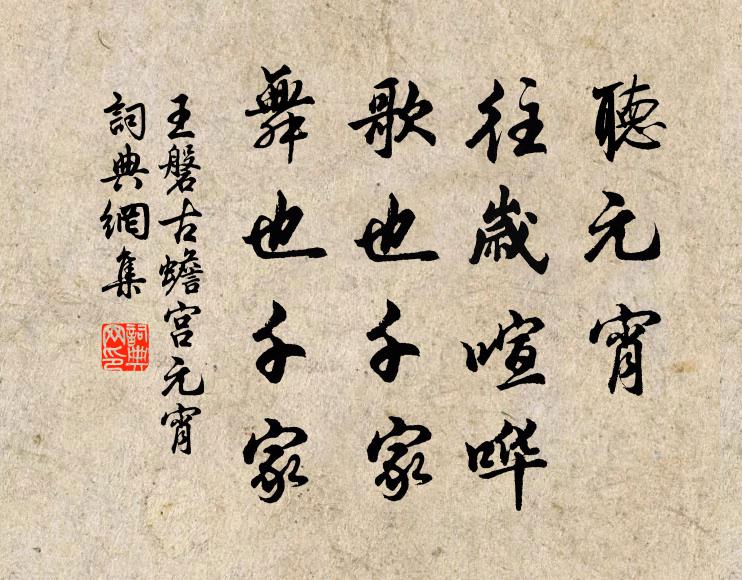 聽元宵
往歲喧哗
歌也千家
舞也千家
王磐古蟾宫元宵
詞典網集
詞典网印